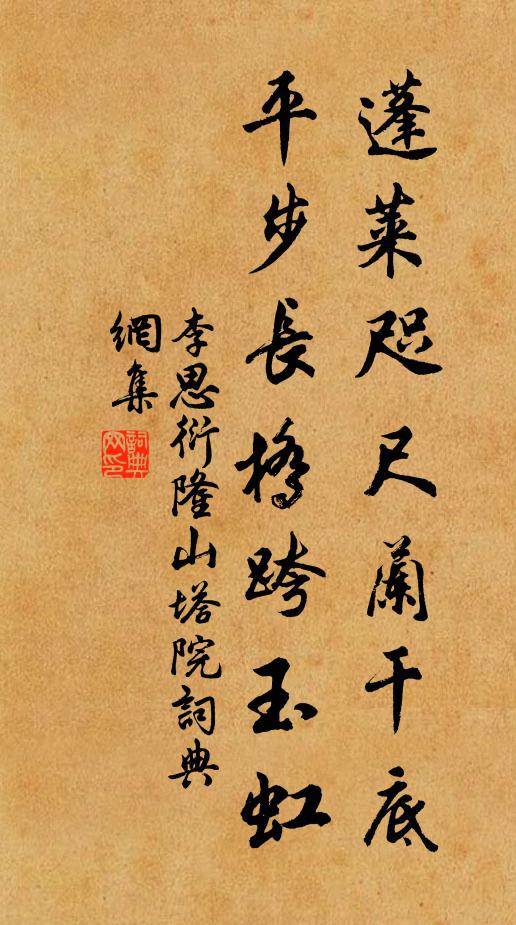 蓬萊咫尺蘭干底
平步長橋跨玉虹
李思衍隆山塔院詞典
網集
詞典
网印